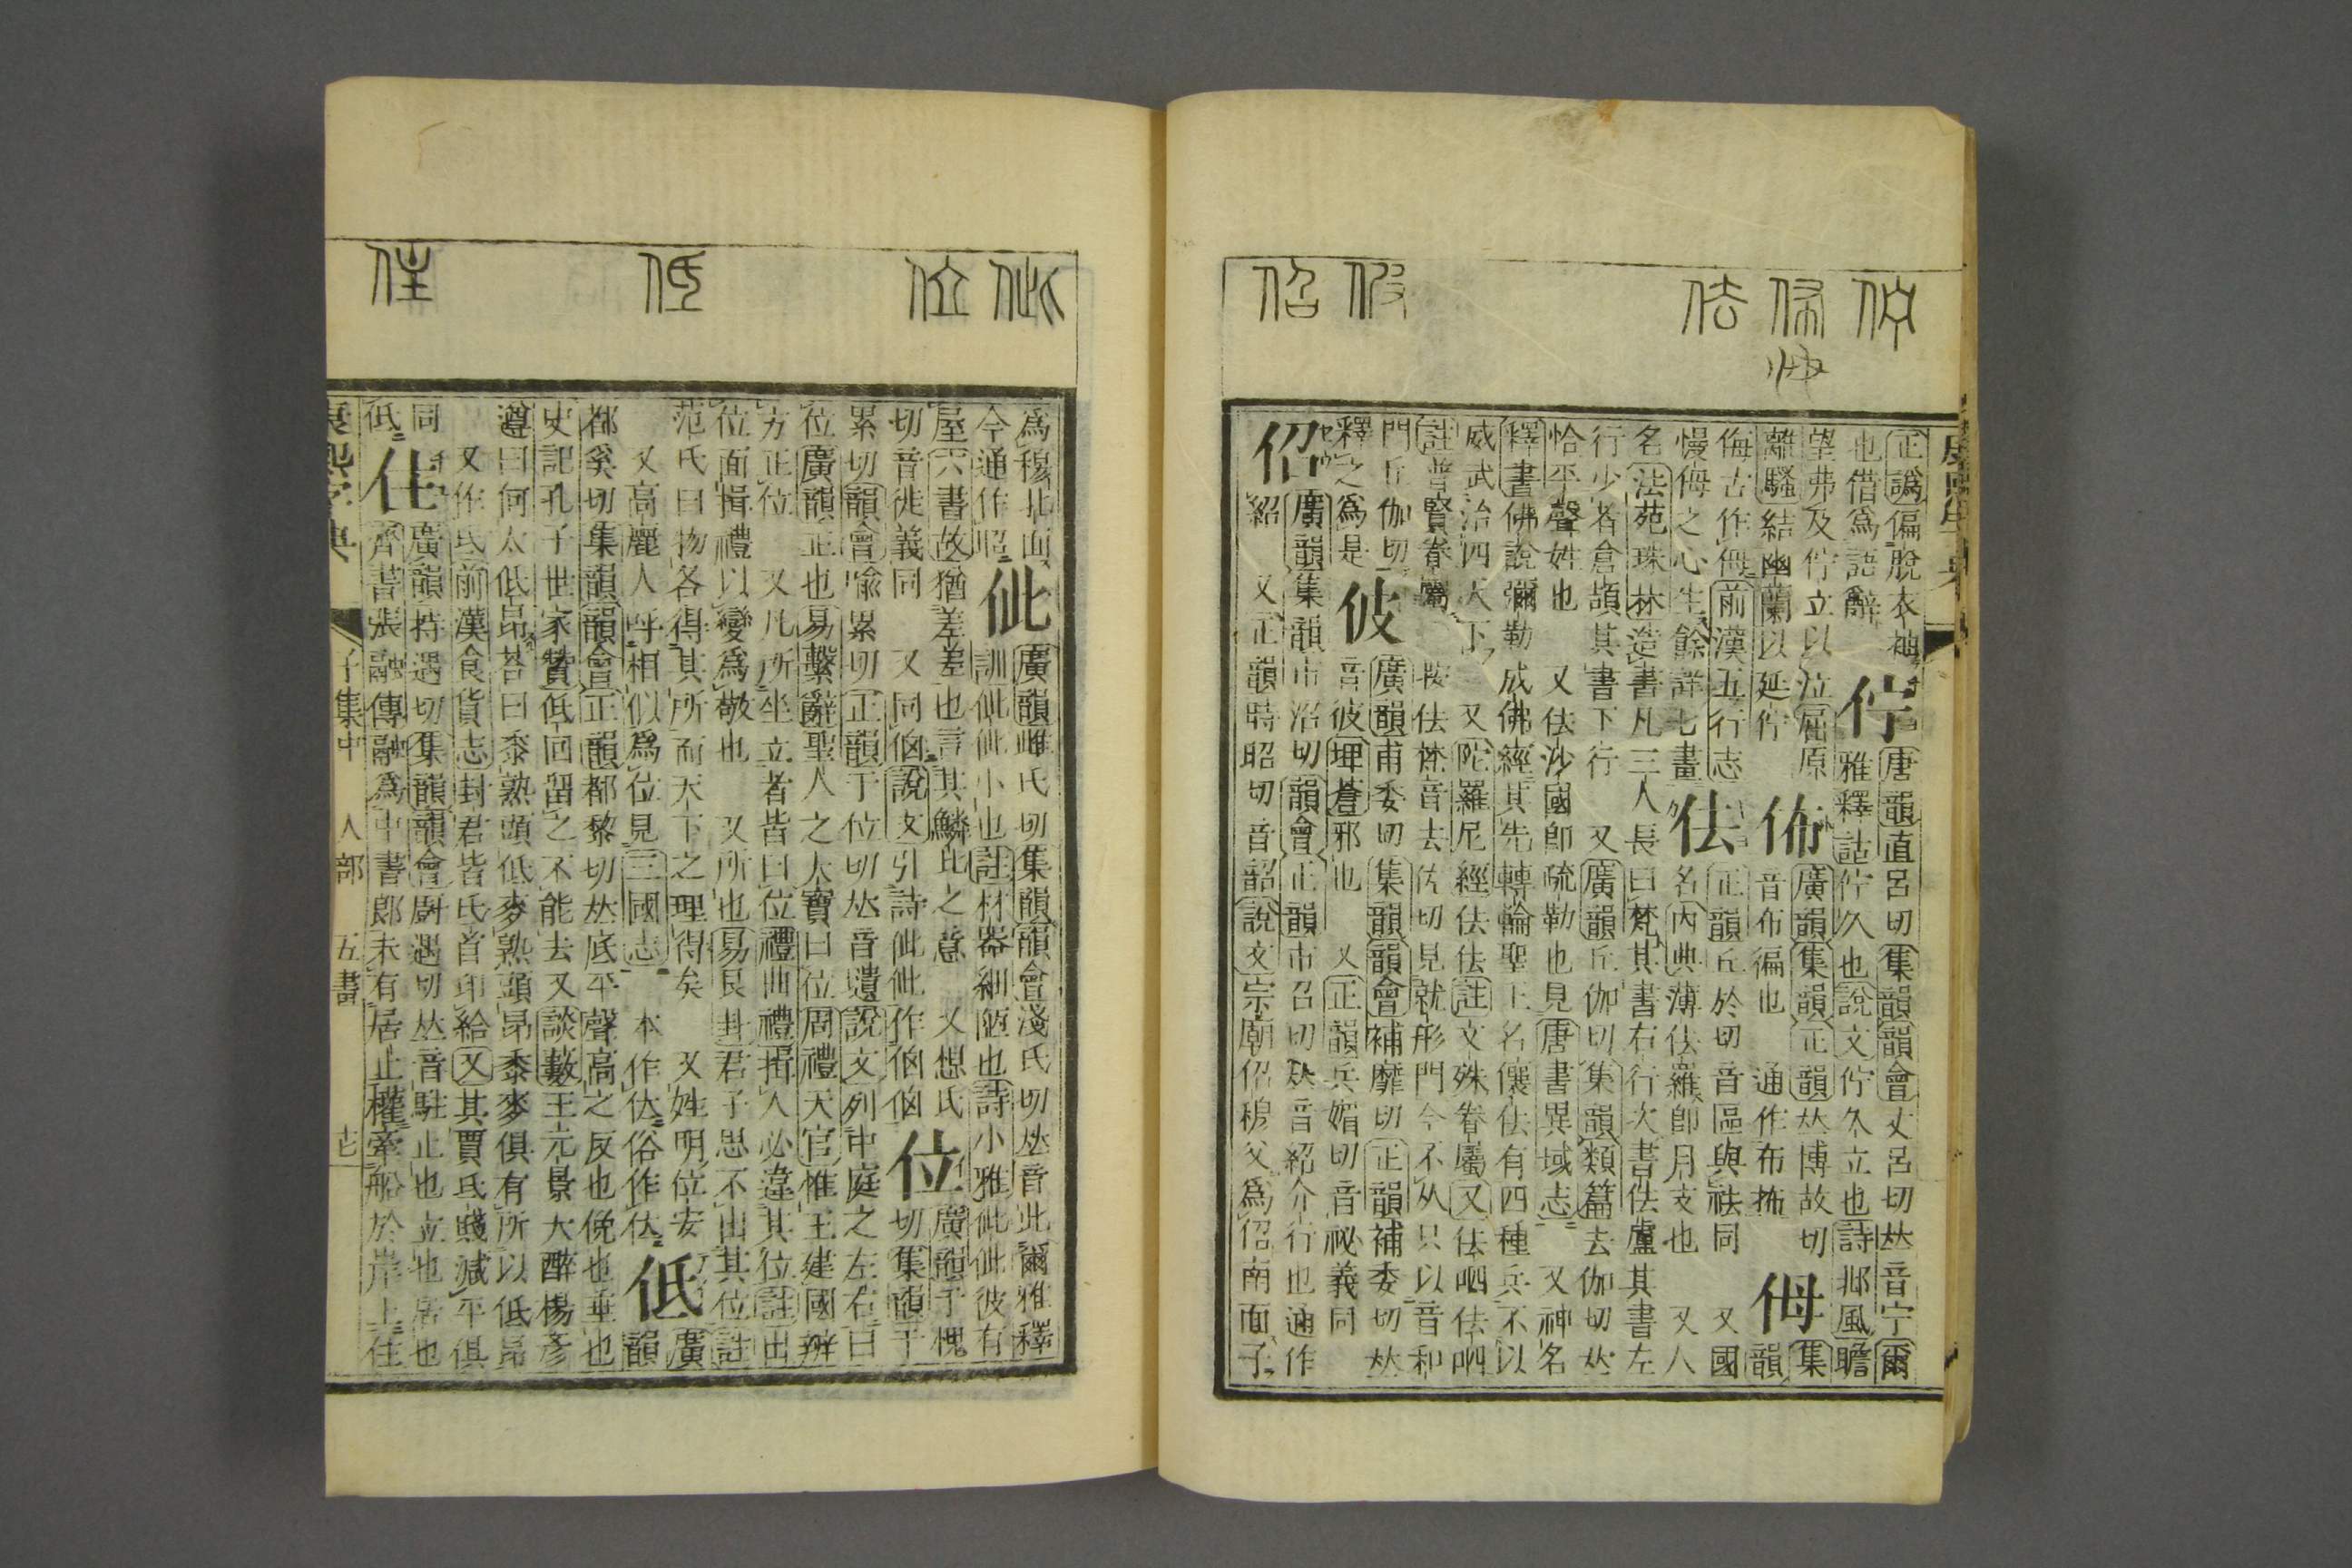 佇 佈 佉 佊 佋
正譌偏脫衣袖
也借爲語辭
佇
唐韻直呂切集韻韻會丈呂切𠀤音宁爾
雅釋詁佇久也說文佇久立也詩邶風瞻
望弗及佇立以泣屈原
離騷結幽蘭以延佇
佈
廣韻集韻正韻𠀤博故切
音布徧也 通作布抪
㑄
集
韻
侮古作㑄前漢五行志
慢侮之心生餘詳七畫
佉
正韻丘於切音區與袪同 又國
名內典薄佉羅卽月支也 又人
名法苑珠林造書凡三人長曰梵其書右行次書佉盧其書左
行少者倉頡其書下行 又廣韻丘伽切集韻類篇去伽切𠀤
恰平聲姓也 又佉沙國卽疏勒也見唐書異域志 又神名
釋書佛說彌勒成佛經其先轉輪聖王名儴佉有四種兵不以
威武治四天下 又陀羅尼經佉佉註文殊眷屬又佉哂佉哂
註普賢眷屬 按佉㭕音去佐切見就形門今不从只以音和
門丘伽切
釋之爲是
佊
廣韻甫委切集韻韻會補靡切正韻補委切𠀤
音彼埤蒼邪也 又正韻兵媚切音祕義同
佋
廣韻集韻市沼切韻會正韻市召切𠀤音紹介行也通作
紹 又正韻時昭切音韶說文宗廟佋穆父爲佋南面子
佌 位 低 住
爲穆北面
今通作昭
佌
廣韻雌氏切集韻韻會淺氏切𠀤音此爾雅釋
訓佌佌小也註材器細陋也詩小雅佌佌彼有
屋六書故猶差差也言其鱗比之意 又想氏
切音徙義同 又同㑡說文引詩佌佌作㑡㑡
位
廣韻于愧
切集韻于
累切韻會喩累切正韻于位切𠀤音遺說文列中庭之左右曰
位廣韻正也易繫辭聖人之大寶曰位周禮天官惟王建國辨
方正位 又凡所坐立者皆曰位禮曲禮揖人必違其位註出
位而揖禮以變爲敬也 又所也易艮卦君子思不出其位註
范氏曰物各得其所而天下之理得矣 又姓明位安
又高麗人呼相似爲位見三國志
低
廣
韻
本作 俗作
都奚切集韻韻會正韻都黎切𠀤底平聲高之反也俛也垂也
史記孔子世家贊低回留之不能去又談藪王元景大醉楊彥
遵曰何太低昂答曰黍熟頭低麥熟頭昂黍麥俱有所以低昂
又作氐前漢食貨志封君皆氐首卬給又其賈氐賤減平俱
同
低
住
廣韻持遇切集韻韻會廚遇切𠀤音駐止也立也居也
齊書張融傳融爲中書郎未有居止權牽船於岸上住
康熙字典 子集中 人部 五畫